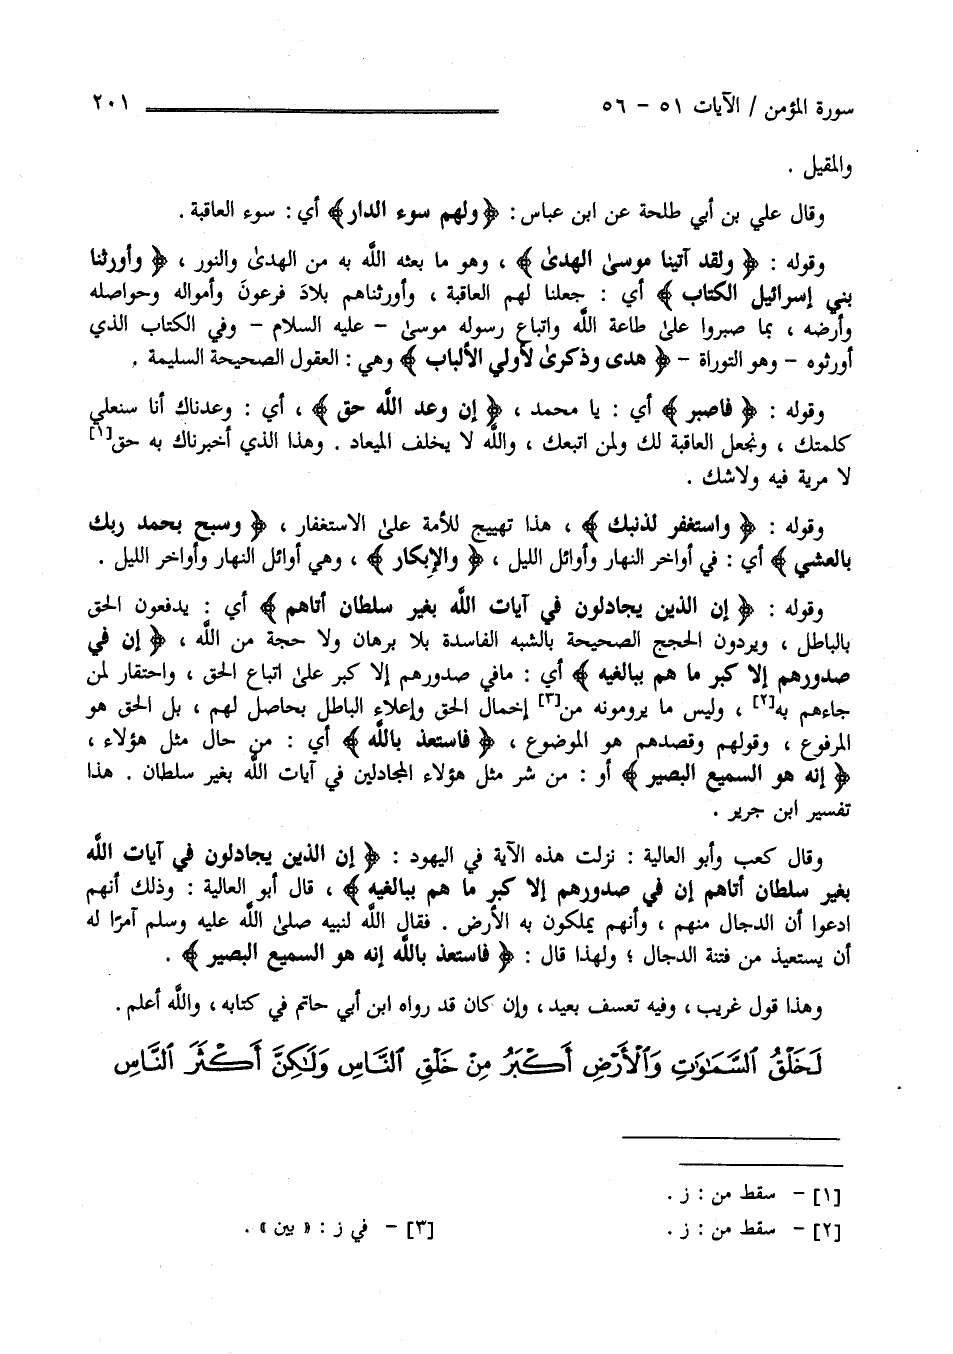 سورة المؤمن / الآيات ٥١ – ٥٦ ٢٠١
والمقيل .
وقال علي بن أبي طلحة عن ابن عباس : ﴿ ولهم سوء الدار ﴾ أي : سوء العاقبة .
وقوله : ﴿ ولقد آتينا موسىٰ الهدىٰ ﴾ ، وهو ما بعثه اللَّه به من الهدىٰ والنور ، ﴿ وأورثنا
بني إسرائيل الكتاب ﴾ أي : جعلنا لهم العاقبة ، وأورثناهم بلادَ فرعونَ وأمواله وحواصله
وأرضه ، بما صبروا علىٰ طاعة اللَّه واتباع رسوله موسىٰ – عليه السلام – وفي الكتاب الذي
أورثوه – وهو التوراة – ﴿ هدى وذكرىٰ لأولي الألباب ﴾ وهي : العقول الصحيحة السليمة .
وقوله : ﴿ فاصبر ﴾ أي : يا محمد ، ﴿ إن وعد اللَّه حق ﴾ ، أي : وعدناك أنا سنعلي
كلمتك ، ونجعل العاقبة لك ولمن اتبعك ، واللَّه لا يخلف الميعاد . وهذا الذي أخبرناك به حق[١]
لا مرية فيه ولاشك .
وقوله : ﴿ واستغفر لذنبك ﴾ ، هذا تهييج للأمة علىٰ الاستغفار ، ﴿ وسبح بحمد ربك
بالعشي ﴾ أي : في أواخر النهار وأوائل الليل ، ﴿ والإبكار ﴾ ، وهي أوائل النهار وأواخر الليل .
وقوله : ﴿ إن الذين يجادلون في آيات اللَّه بغير سلطان أتاهم ﴾ أي : يدفعون الحق
بالباطل ، ويردون الحجج الصحيحة بالشبه الفاسدة بلا برهان ولا حجة من اللَّه ، ﴿ إن في
صدورهم إلا كبر ما هم ببالغيه ﴾ أي : مافي صدورهم إلا كبر علىٰ اتباع الحق ، واحتقار لمن
جاءهم به[٢] ، وليس ما يرومونه من[٣] إخمال الحق وإعلاء الباطل بحاصل لهم ، بل الحق هو
المرفوع ، وقولهم وقصدهم هو الموضوع ، ﴿ فاستعذ باللَّه ﴾ أي : من حال مثل هؤلاء ،
﴿ إنه هو السميع البصير ﴾ أو : من شر مثل هؤلاء المجادلين في آيات اللَّه بغير سلطان . هذا
تفسير ابن جرير .
وقال كعب وأبو العالية : نزلت هذه الآية في اليهود : ﴿ إن الذين يجادلون في آيات اللَّه
بغير سلطان أتاهم إن في صدورهم إلا كبر ما هم ببالغيه ﴾ ، قال أبو العالية : وذلك أنهم
ادعوا أن الدجال منهم ، وأنهم يملكون به الأرض . فقال اللَّه لنبيه صلىٰ اللَّه عليه وسلم آمرًا له
أن يستعيذ من فتنة الدجال ؛ ولهذا قال : ﴿ فاستعذ باللَّه إنه هو السميع البصير ﴾ .
وهذا قول غريب ، وفيه تعسف بعيد ، وإن كان قد رواه ابن أبي حاتم في كتابه ، واللَّه أعلم .
لَخَلْقُ ٱلسَّمَٰوَٰتِ وَٱلْأَرْضِ أَكْبَرُ مِنْ خَلْقِ ٱلنَّاسِ وَلَٰكِنَّ أَكْثَرَ ٱلنَّاسِ
[١] – سقط من : ز .
[٢] – سقط من : ز . [٣] – في ز : « بين » .